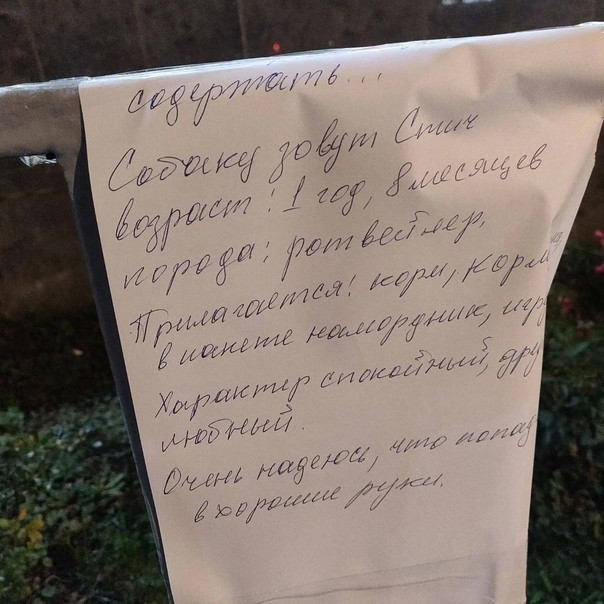 содержать...
Собаку зовут Стич
возраст: 1 год, 8 месяцев
порода: ротвейлер,
Прилагается! корм,
в пакете намордник, игру
Характер спокойный, дру
любный.
Очень надеюсь, что попад
в хорошие руки.